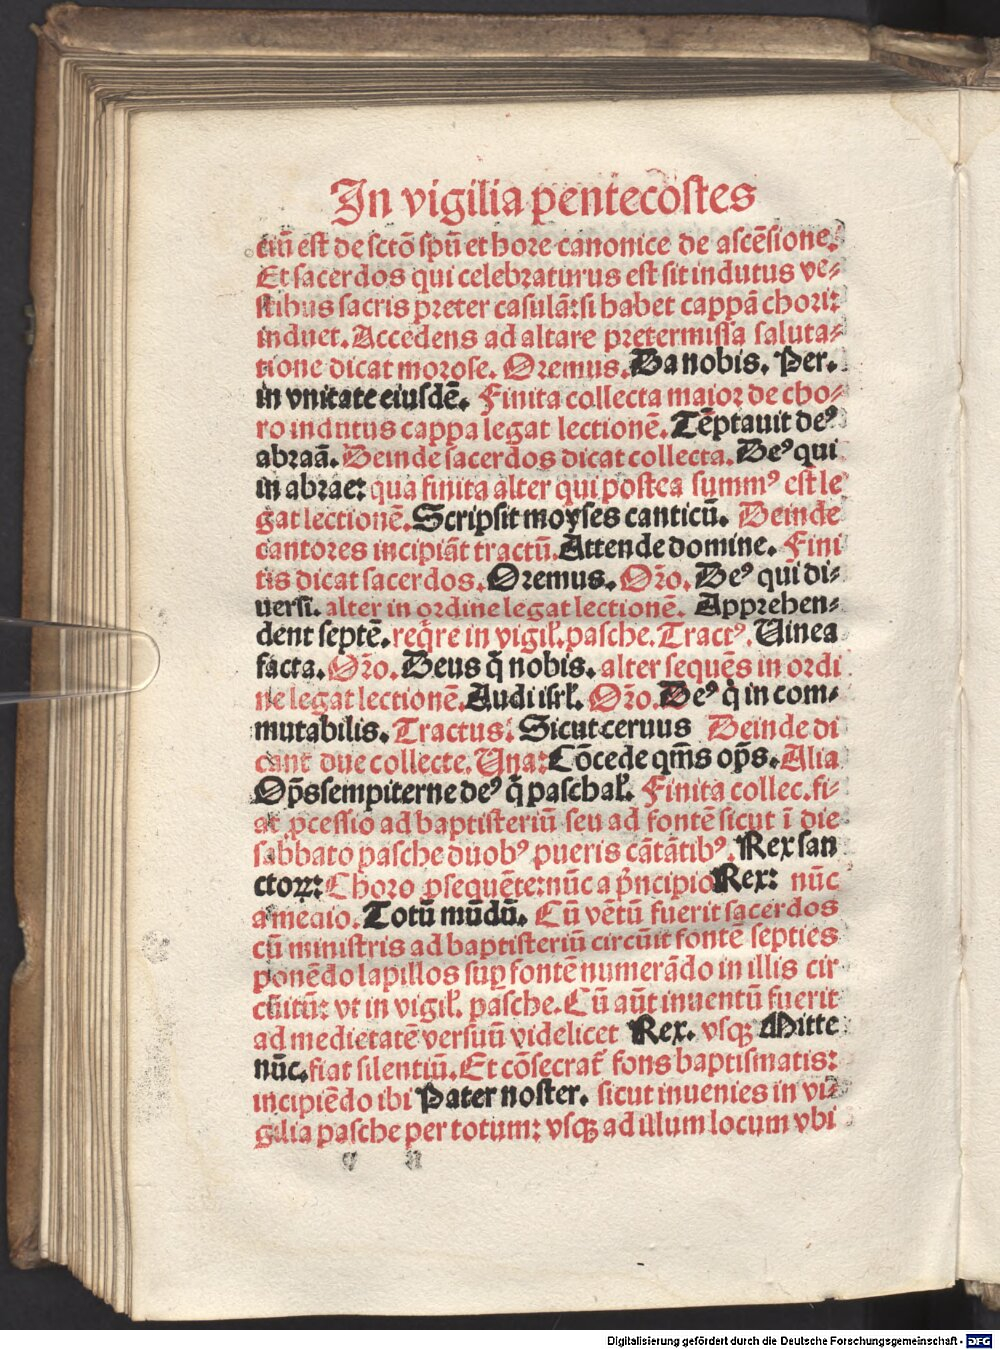 In vigilia pentecostes
ciū est de sctō spū et hore canonice de ascēsione.
Et sacerdos qui celebraturus est sit indutus ve-
stibus sacris preter casulā: si habet cappā chori:
induet. Accedens ad altare pretermissa saluta-
tione dicat morose. Oremus. Da nobis. Per.
in vnitate eiusdē. Finita collecta maior de cho-
ro indutus cappa legat lectionē. Tēptauit deꝰ
abraā. Deinde sacerdos dicat collecta. Deꝰ qui
in abrae: qua finita alter qui postea summꝰ est le
gat lectionē. Scripsit moyses canticū. Deinde
cantores incipiāt tractū. Attende domine. Fini
tis dicat sacerdos. Oremus. Orō. Deꝰ qui di-
uersi. alter in ordine legat lectionē. Apprehen-
dent septē. reqͥre in vigil'. pasche. Tractꝰ. Uinea
facta. Orō. Deus qͥ nobis. alter sequēs in ordi
ne legat lectionē. Audi isrl'. Orō. Deꝰ qͥ in com-
mutabilis. Tractus. Sicut ceruus Deinde di
cant due collecte. Una: Cōcede qm̄s op̄s. Alia
Op̄s sempiterne deꝰ qͥ paschal'. Finita collec. fi-
at ꝓcessio ad baptisteriū seu ad fontē sicut ī die
sabbato pasche duobꝰ pueris cātātibꝰ. Rex san
ctoꝝ: Choro ꝓsequēte: nūc a pͥncipio Rex: nūc
a medio. Totū mūdū. Cū vētū fuerit sacerdos
cū ministris ad baptisteriū circūit fontē septies
ponēdo lapillos suꝑ fontē numerādo in illis cir
cūitū: vt in vigil'. pasche. Cū aūt inuentū fuerit
ad medietatē versuū videlicet Rex. vsqꝫ Mitte
nūc. fiat silentiū. Et cōsecrat' fons baptismatis:
incipiēdo ibi Pater noster. sicut inuenies in vi-
gilia pasche per totum: vsqꝫ ad illum locum vbi
Digitalisierung gefördert durch die Deutsche Forschungsgemeinschaft - DFG